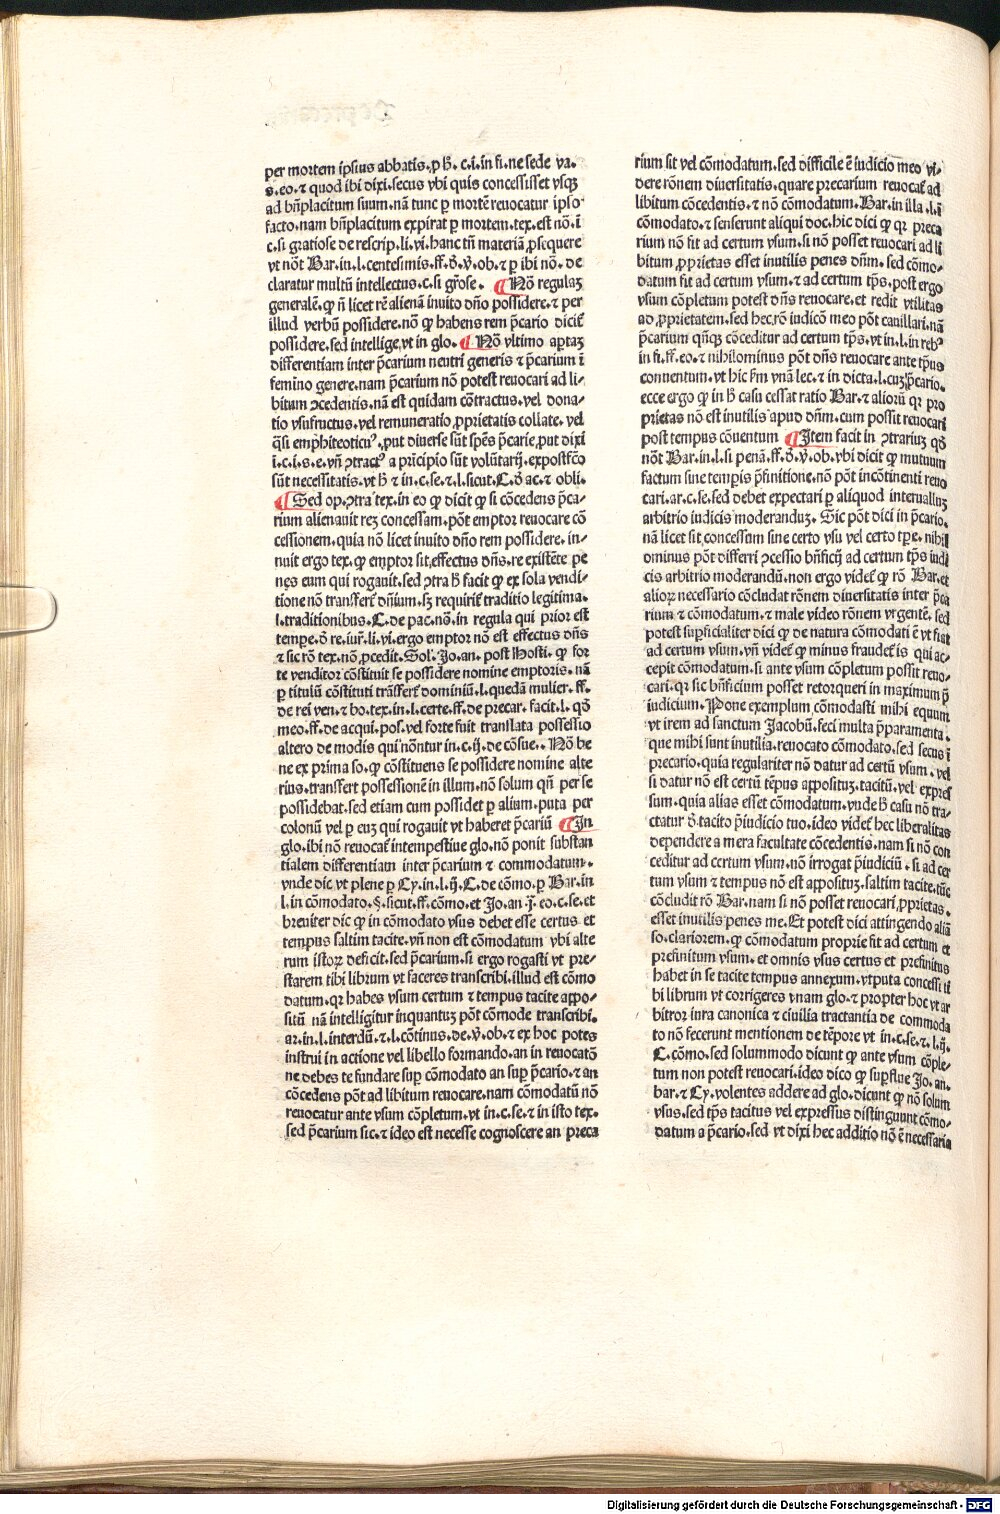 per mortem ipsius abbatis. ꝓ hͦ. c. i. in fi. ne sede va-
s. eo. ⁊ quod ibi dixi. secus vbi quis concessisset vsqꝫ
ad bn̄placitum suum. nā tunc ꝑ mortē reuocatur ipso
facto. nam bn̄placitum expirat ꝑ mortem. tex. est nō. ī
c. si gratiose de rescrip. li. vi. hanc tn̄ materiā ꝓsequere
vt nōt Bar. in. l. centesimis. ff. đ. v̄. ob. ⁊ ꝑ ibi nō. de
claratur multū intellectus. c. si gr̄ose. ¶ Nō regulaꝫ
generalē. ꝙ n̄ licet rē alienā inuito dn̄o possidere. ⁊ per
illud verbū possidere. nō ꝙ habens rem p̄cario dicit̄
possidere. sed intellige, vt in glo. ¶ Nō vltimo aꝑtaꝫ
differentiam inter p̄carium neutri generis ⁊ p̄carium ī
femino genere. nam p̄carium nō potest reuocari ad li-
bitum ꝯcedentis. nā est quidam cōtractus. vel dona-
tio vsufructus. vel remuneratio ꝓprietatis collate. vel
q̄si emphiteoticꝰ, put diuerse sūt spēs p̄carie, put dixi
ī. c. i. s. e. vn̄ ꝯtractꝰ a prīcipio sūt volūtarij. expostfc̄o
sūt necessitatis. vt hͦ ⁊ in. c. se. ⁊. l. sicut. C. đ ac. ⁊ obli.
¶ Sed op. ꝯtra tex. in eo ꝙ dicit ꝙ si cōcedens p̄ca-
rium alienauit reꝫ concessam. pōt emptor reuocare cō
cessionem. quia nō licet inuito dn̄o rem possidere. in-
nuit ergo tex. ꝙ emptor sit effectus dn̄s. re existēte pe
nes eum qui rogauit. sed ꝯtra hͦ facit ꝙ ex sola vendi-
tione nō transfert̄ dn̄ium. sꝫ requirit̄ traditio legitima.
l. traditionibus. C. de pac. nō. in regula qui prior est
tempe. đ re. iur̄. li. vi. ergo emptor nō est effectus dn̄s
⁊ sic rō tex. nō ꝓcedit. Sol. Jo. an. post Hosti. ꝙ for
te venditor cōstituit se possidere nomine emptoris. nā
ꝑ titulū cōstituti trāsfert̄ dominiū. l. quedā mulier. ff.
de rei ven. ⁊ bo. tex. in. l. certe. ff. de precar. facit. l. qđ
meo. ff. de acqui. pos. vel forte fuit translata possessio
altero de modis qui nōntur in. c. ij. de cōsue.. Nō be
ne ex prima so. ꝙ cōstituens se possidere nomine alte
rius. transfert possessionē in illum. nō solum qn̄ per se
possidebat. sed etiam cum possidet ꝑ alium. puta per
colonū vel ꝑ euꝫ qui rogauit vt haberet p̄cariū ¶ In
glo. ibi nō reuocat̄ intempestiue glo. nō ponit substan
tialem differentiam inter p̄carium ⁊ commodatum.
vnde dic vt plene ꝑ Cy. in. l. ij. C. de cōmo. ꝑ Bar. in
l. in cōmodato. §. sicut. ff. cōmo. et Jo. an. j̄. eo. c. se. et
breuiter dic ꝙ in cōmodato vsus debet esse certus et
tempus saltim tacite. vn̄ non est cōmodatum vbi alte
rum istoꝝ deficit. sed p̄carium. si ergo rogasti vt pre-
starem tibi librum vt faceres transcribi. illud est cōmo
datum. qꝛ habes vsum certum ⁊ tempus tacite appo-
sitū nā intelligitur inquantuꝫ pōt cōmode transcribi.
ar. in. l. interdū. ⁊. l. cōtinus. de. v̄. ob. ⁊ ex hoc potes
instrui in actione vel libello formando. an in reuocatō
ne debes te fundare suꝑ cōmodato an suꝑ p̄cario. ⁊ an
cōcedens pōt ad libitum reuocare. nam cōmodatū nō
reuocatur ante vsum cōpletum. vt in. c. se. ⁊ in isto tex.
sed p̄carium sic. ⁊ ideo est necesse cognoscere an preca
rium sit vel cōmodatum. sed difficile ē iudicio meo vi-
dere rōnem diuersitatis. quare precarium reuocat̄ ad
libitum cōcedentis. ⁊ nō cōmodatum. Bar. in illa. l. ī
cōmodato. ⁊ senserunt aliqui doc. hic dici ꝙ qꝛ preca
rium nō fit ad certum vsum. si nō posset reuocari ad li
bitum ꝓprietas esset inutilis penes dn̄m. sed cōmo-
datum fit ad certum vsum. ⁊ ad certum tp̄s. post ergo
vsum cōpletum potest dn̄s reuocare. et redit vtilitas
ad ꝓprietatem. sed hec rō iudicō meo pōt cauillari. nā
p̄carium qn̄qꝫ cōceditur ad certum tp̄s. vt in. l. in rebꝰ
in fi. ff. eo. ⁊ nihilominus pōt dn̄s reuocare ante tp̄us
conuentum. vt hic hm̄ vnā lec. ⁊ in dicta. l. cuꝫ p̄cario.
ecce ergo ꝙ in hͦ casu cessat ratio Bar. ⁊ alioꝝ qꝛ pro
prietas nō est inutilis apud dn̄m. cum possit reuocari
post tempus cōuentum ¶ Item facit in ꝯtrariuꝫ qđ
nōt Bar. in. l. si penā. ff. đ. v̄. ob. vbi dicit ꝙ mutuum
factum sine temꝑis p̄finitione. nō pōt incōtinenti reuo
cari. ar. c. se. sed debet expectari ꝑ aliquod interualluꝫ
arbitrio iudicis moderanduꝫ. Sic pōt dici in p̄cario.
nā licet sit concessum sine certo vsu vel certo tp̄e. nihil
ominus pōt differri ꝯcessio bn̄ficij ad certum tp̄s iudi
cis arbitrio moderandū. non ergo videt̄ ꝙ rō Bar. et
alioꝝ necessario cōcludat rōnem diuersitatis inter p̄ca
rium ⁊ cōmodatum. ⁊ male video rōnem vrgentē. sed
potest suꝑficialiter dici ꝙ de natura cōmodati ē vt fiat
ad certum vsum. vn̄ videt̄ ꝙ minus fraudet̄ is qui ac-
cepit cōmodatum. si ante vsum cōpletum possit reuo-
cari. qꝛ sic bn̄ficium posset retorqueri in maximum p̄
iudicium. Pone exemplum cōmodasti mihi equum
vt irem ad sanctum Jacobū. feci multa p̄paramenta.
que mihi sunt inutilia. reuocato cōmodato. sed secus ī
precario. quia regulariter nō datur ad certū vsum. vel
si datur nō est certū tēpus appositꝫ. tacitū. vel expres
sum. quia alias esset cōmodatum. vnde hͦ casu nō tra-
ctatur đ. tacito p̄iudicio tuo. ideo videt̄ hec liberalitas
dependere a mera facultate cōcedentis. nam si nō con
ceditur ad certum vsum. nō irrogat p̄iudiciū. si ad cer
tum vsum ⁊ tempus nō est appositꝫ. saltim tacite. tūc
cōcludit rō Bar. nam si nō posset reuocari ꝓprietas.
esset inutilis penes me. Et potest dici attingendo aliā
so. clariorem. ꝙ cōmodatum proprie fit ad certum et
prefinitum vsum. et omnis vsus certus et prefinitus
habet in se tacite tempus annexum. vtputa concessi ti
bi librum vt corrigeres vnam glo. ⁊ propter hoc vt ar
bitror iura canonica ⁊ ciuilia tractantia de commoda
to nō fecerunt mentionem de tēpore vt in. c. se. ⁊. l. ij.
C. cōmo. sed solummodo dicunt ꝙ ante vsum cōple-
tum non potest reuocari. ideo dico ꝙ suꝑflue Jo. an.
bar. ⁊ Cy. volentes addere ad glo. dicunt ꝙ nō solum
vsus. sed tp̄s tacitus vel expressus distinguunt cōmo-
datum a p̄cario. sed vt dixi hec additio nō ē necessaria
Digitalisierung gefördert durch die Deutsche Forschungsgemeinschaft - DFG